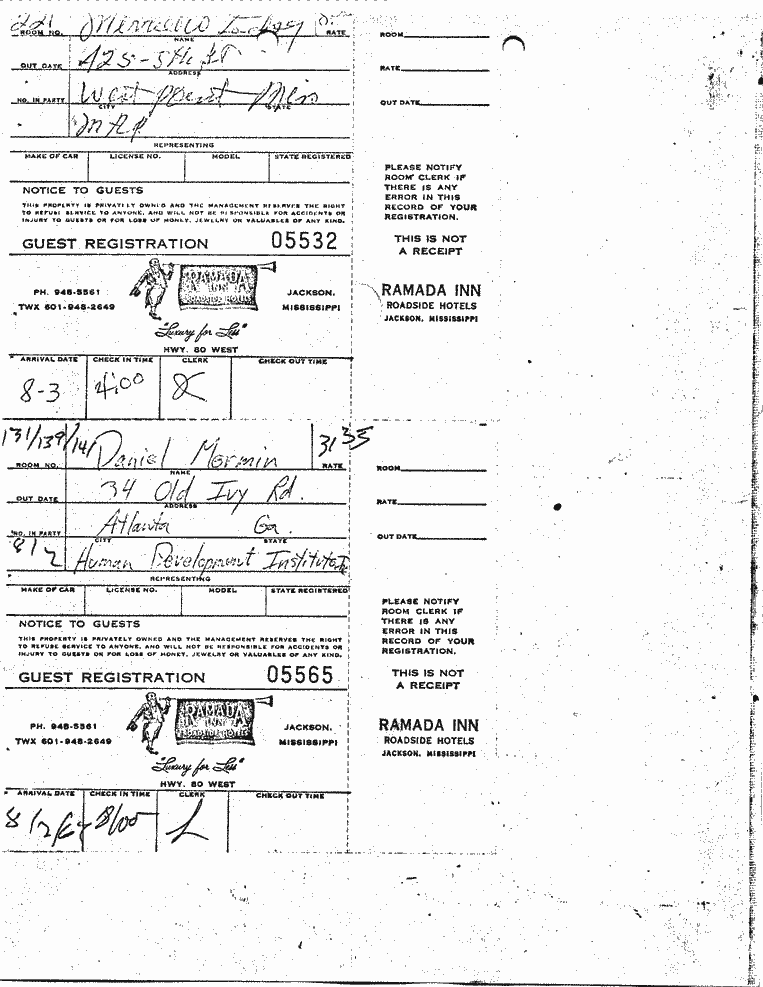 221
ROOM NO. NAME RATE
425-5th St
OUT DATE ADDRESS
West point Miss
NO. IN PARTY CITY STATE
MAP
REPRESENTING
MAKE OF CAR LICENSE NO. MODEL STATE REGISTERED
NOTICE TO GUESTS
THIS PROPERTY IS PRIVATELY OWNED AND THE MANAGEMENT RESERVES THE RIGHT
TO REFUSE SERVICE TO ANYONE, AND WILL NOT BE RESPONSIBLE FOR ACCIDENTS OR
INJURY TO GUESTS OR FOR LOSS OF MONEY, JEWELRY OR VALUABLES OF ANY KIND.
GUEST REGISTRATION 05532
PH. 948-5561
TWX 601-948-2649
RAMADA
INN
ROADSIDE HOTELS
JACKSON,
MISSISSIPPI
"Luxury for Less"
HWY. 80 WEST
ARRIVAL DATE CHECK IN TIME CLERK CHECK OUT TIME
8-3 4:00
ROOM
RATE
OUT DATE
PLEASE NOTIFY
ROOM CLERK IF
THERE IS ANY
ERROR IN THIS
RECORD OF YOUR
REGISTRATION.
THIS IS NOT
A RECEIPT
RAMADA INN
ROADSIDE HOTELS
JACKSON, MISSISSIPPI
131/139/141 Daniel Mermin 31 35
ROOM NO. NAME RATE
34 Old Ivy Rd.
OUT DATE ADDRESS
Atlanta Ga.
NO. IN PARTY CITY STATE
8/2 Human Development Institute, In
REPRESENTING
MAKE OF CAR LICENSE NO. MODEL STATE REGISTERED
NOTICE TO GUESTS
THIS PROPERTY IS PRIVATELY OWNED AND THE MANAGEMENT RESERVES THE RIGHT
TO REFUSE SERVICE TO ANYONE, AND WILL NOT BE RESPONSIBLE FOR ACCIDENTS OR
INJURY TO GUESTS OR FOR LOSS OF MONEY, JEWELRY OR VALUABLES OF ANY KIND.
GUEST REGISTRATION 05565
PH. 948-5561
TWX 601-948-2649
RAMADA
INN
ROADSIDE HOTELS
JACKSON,
MISSISSIPPI
"Luxury for Less"
HWY. 80 WEST
ARRIVAL DATE CHECK IN TIME CLERK CHECK OUT TIME
8/2/67 8/00
ROOM
RATE
OUT DATE
PLEASE NOTIFY
ROOM CLERK IF
THERE IS ANY
ERROR IN THIS
RECORD OF YOUR
REGISTRATION.
THIS IS NOT
A RECEIPT
RAMADA INN
ROADSIDE HOTELS
JACKSON, MISSISSIPPI